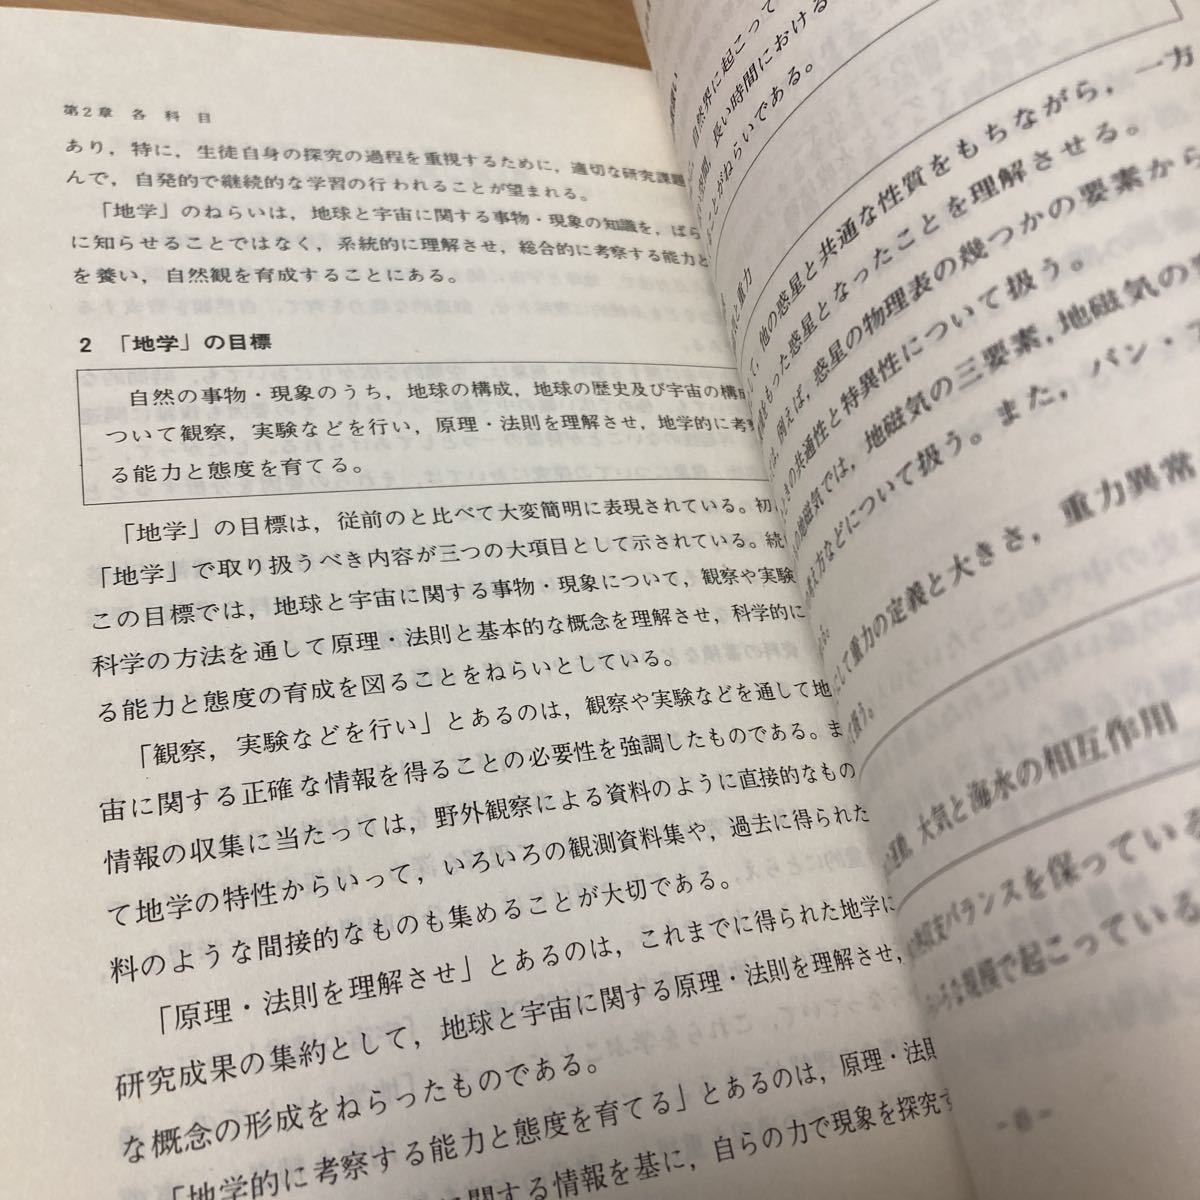 第2章 各科目
あり，特に，生徒自身の探究の過程を重視するために，適切な研究課題
んで，自発的で継続的な学習の行われることが望まれる。
「地学」のねらいは，地球と宇宙に関する事物・現象の知識を，ばら
に知らせることではなく，系統的に理解させ，総合的に考察する能力と
を養い，自然観を育成することにある。
2 「地学」の目標
自然の事物・現象のうち，地球の構成，地球の歴史及び宇宙の構成
ついて観察，実験などを行い，原理・法則を理解させ，地学的に考察
る能力と態度を育てる。
「地学」の目標は，従前のと比べて大変簡明に表現されている。初
「地学」で取り扱うべき内容が三つの大項目として示されている。続
この目標では，地球と宇宙に関する事物・現象について，観察や実験
科学の方法を通して原理・法則と基本的な概念を理解させ，科学的に
る能力と態度の育成を図ることをねらいとしている。
「観察，実験などを行い」とあるのは，観察や実験などを通して地
宙に関する正確な情報を得ることの必要性を強調したものである。ま
情報の収集に当たっては，野外観察による資料のように直接的なもの
て地学の特性からいって，いろいろの観測資料集や，過去に得られた
料のような間接的なものも集めることが大切である。
「原理・法則を理解させ」とあるのは，これまでに得られた地学に
研究成果の集約として，地球と宇宙に関する原理・法則を理解させ，
な概念の形成をねらったものである。
「地学的に考察する能力と態度を育てる」とあるのは，原理・法則
に関する情報を基に，自らの力で現象を探究す
自然界に起こって
空間，長い時間における
ことがねらいである。
気と重力
して，他の惑星と共通な性質をもちながら，一方
をもった惑星となったことを理解させる。
は，例えば，惑星の物理表の幾つかの要素から
きの共通性と特異性について扱う。
の地磁気では，地磁気の三要素，地磁気の
考え方などについて扱う。また，バン・ア
として重力の定義と大きさ，重力異常
て扱う。
大気と海水の相互作用
収支バランスを保っている
な規模で起こっている